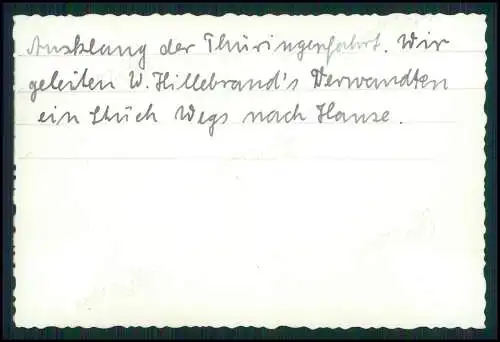 Ausklang der Thüringenfahrt. Wir
geleiten W. Hillebrand's Verwandten
ein Stück Wegs nach Hause.